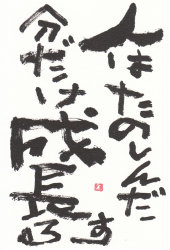 人はたのしんだ
分だけ成長す
る